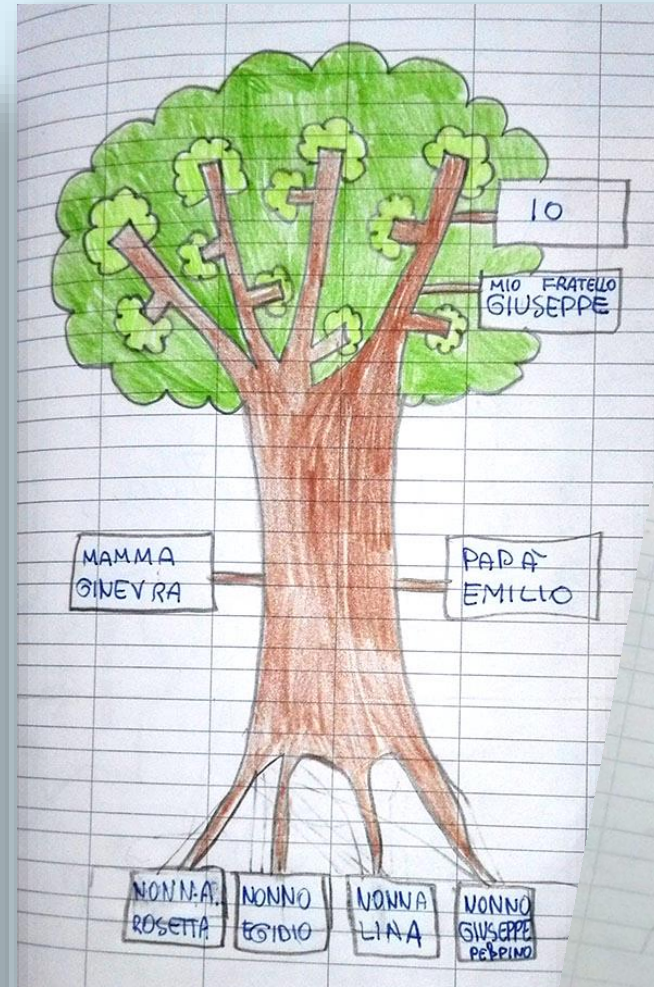 IO
MIO FRATELLO
GIUSEPPE
MAMMA
GINEVRA
PAPÀ
EMILIO
NONNA
ROSETTA
NONNO
EGIDIO
NONNA
LINA
NONNO
GIUSEPPE
PEPPINO